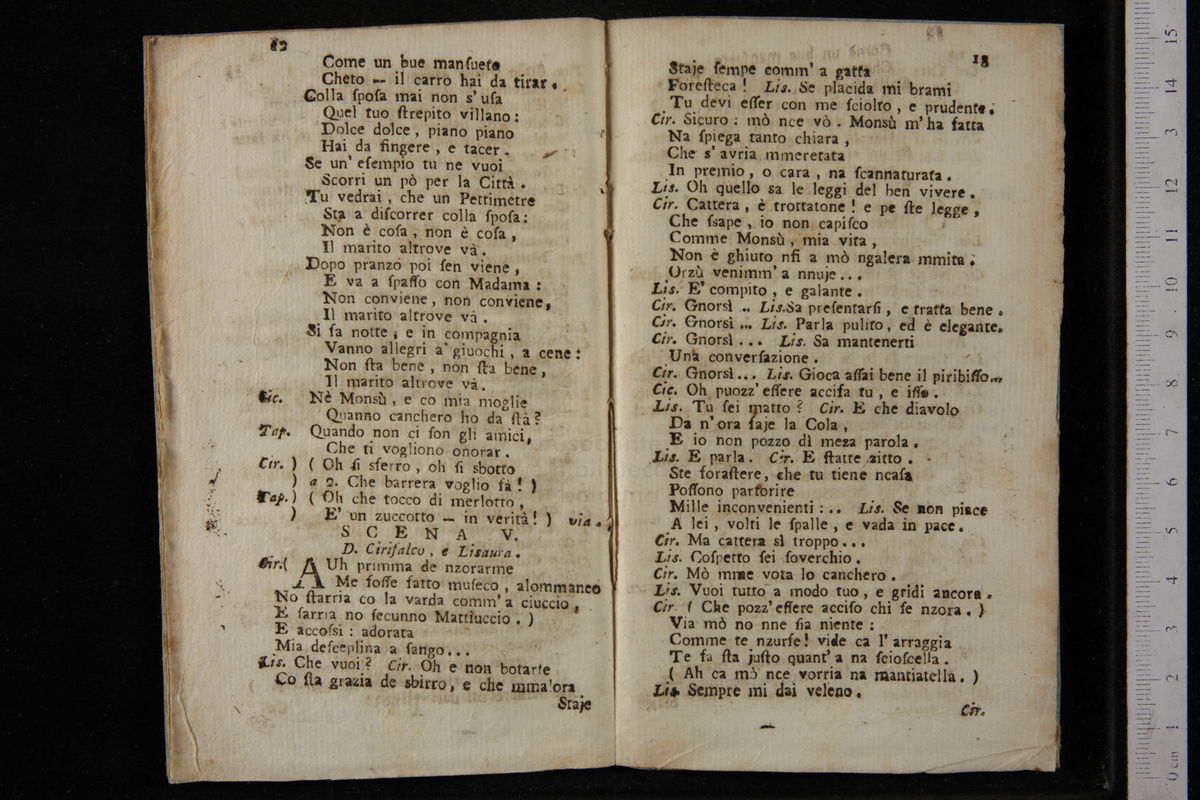 12
Come un bue manſueto
Cheto — il carro hai da tirar.
Colla ſpoſa mai non s' uſa
Quel tuo ſtrepito villano:
Dolce dolce, piano piano
Hai da fingere, e tacer.
Se un' eſempio tu ne vuoi
Scorri un pò per la Città.
Tu vedrai, che un Pettimetre
Sta a diſcorrer colla ſpoſa:
Non è coſa, non è coſa,
Il marito altrove và.
Dopo pranzo poi ſen viene,
E va a ſpaſſo con Madama:
Non conviene, non conviene,
Il marito altrove và.
Si fa notte, e in compagnia
Vanno allegri a' giuochi, a cene:
Non ſta bene, non ſta bene,
Il marito altrove và.
Cic. Nè Monsù, e co mia moglie
Quanno canchero ho da ſtà?
Tap. Quando non ci ſon gli amici,
Che ti vogliono onorar.
Cir. ) ( Oh ſi sferro, oh ſi sbotto
) a 2. Che barrera voglio fà! )
Tap. ) ( Oh che tocco di merlotto,
) E' un zuccotto — in verità! ) via.
SCENA V.
D. Cirifalco, e Lisaura.
Cir. ( AUh primma de nzorarme
Me foſſe fatto muſeco, alommanco
No ſtarria co la varda comm' a ciuccio,
E ſarria no ſecunno Mattiuccio. )
E accoſsi: adorata
Mia deſceplina a ſango...
Lis. Che vuoi? Cir. Oh e non botarte
Co ſta grazia de sbirro, e che mmalora
Staje
13
Staje ſempe comm' a gatta
Foreſteca! Lis. Se placida mi brami
Tu devi eſſer con me ſciolto, e prudente.
Cir. Sicuro: mò nce vò. Monsù m'ha fatta
Na ſpiega tanto chiara,
Che s' avria mmeretata
In premio, o cara, na ſcannaturata.
Lis. Oh quello sa le leggi del ben vivere.
Cir. Cattera, è trottatone! e pe ſte legge,
Che ſsape, io non capiſco
Comme Monsù, mia vita,
Non è ghiuto nfi a mò ngalera mmita.
Orzù venimm' a nnuje...
Lis. E' compito, e galante.
Cir. Gnorsì .. Lis. Sa preſentarſi, e tratta bene.
Cir. Gnorsì ... Lis. Parla pulito, ed è elegante.
Cir. Gnorsì ... Lis. Sa mantenerti
Una converſazione.
Cir. Gnorsì... Lis. Gioca aſſai bene il piribiſſo...
Cic. Oh puozz' eſſere acciſa tu, e iſſo.
Lis. Tu ſei matto? Cir. E che diavolo
Da n'ora ſaje la Cola,
E io non pozzo dì meza parola.
Lis. E parla. Cir. E ſtatte zitto.
Ste foraſtere, che tu tiene ncaſa
Poſſono partorire
Mille inconvenienti: .. Lis. Se non piace
A lei, volti le ſpalle, e vada in pace.
Cir. Ma cattera sì troppo...
Lis. Coſpetto ſei ſoverchio.
Cir. Mò mme vota lo canchero.
Lis. Vuoi tutto a modo tuo, e gridi ancora.
Cir ( Che pozz' eſſere acciſo chi ſe nzora. )
Via mò no nne ſia niente:
Comme te nzurfe! vide ca l' arraggia
Te fa ſta juſto quant' a na ſcioſcella.
( Ah ca mò nce vorria na mantiatella. )
Lis. Sempre mi dai veleno.
Cir.